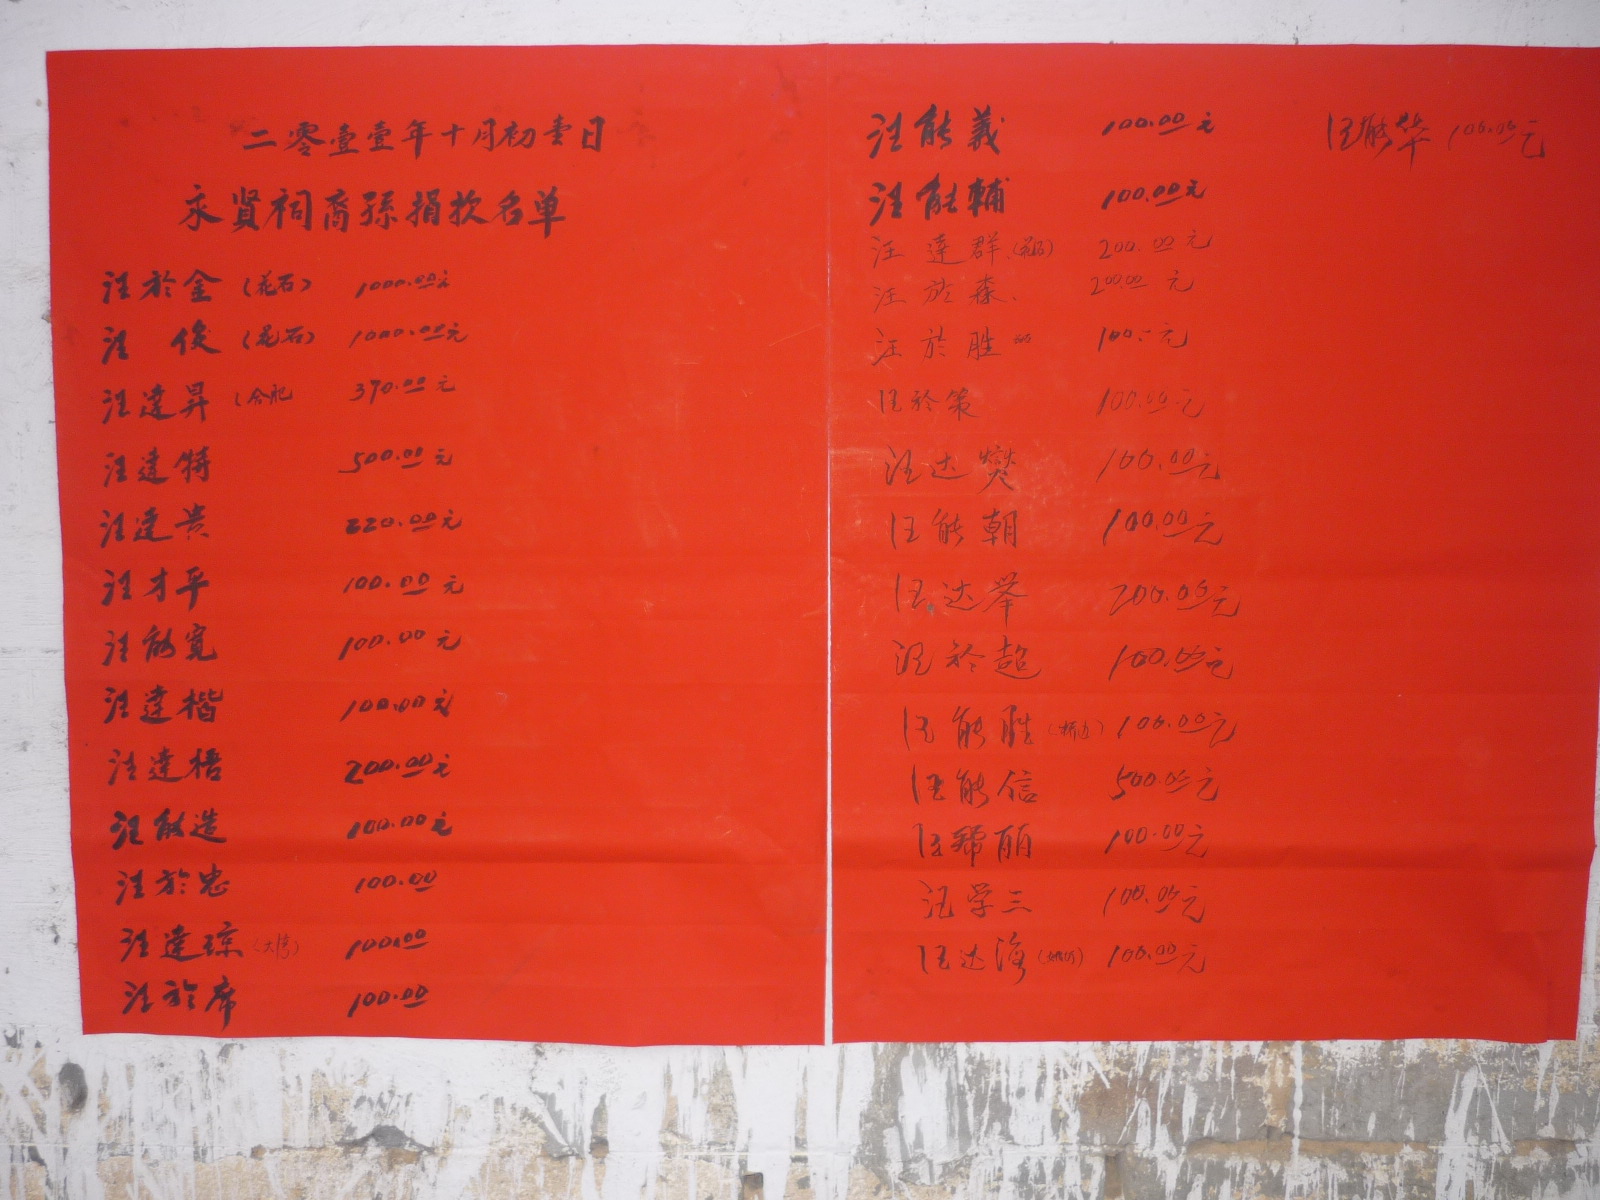 二零壹壹年十月初壹日
永贤祠裔孫捐款名单
汪於金(花石) 1000.00元
汪俊(花石) 1000.00元
汪達昇(合肥 370.00元
汪達特 500.00元
汪達贵 220.00元
汪才平 100.00元
汪能寬 100.00元
汪達楷 100.00元
汪達梧 200.00元
汪能造 100.00元
汪於忠 100.00
汪達琼(大湾) 100.00
汪於席 100.00
汪能義 100.00元
汪能輔 100.00元
汪達群(花石) 200.00元
汪於森 200.00元
汪於胜 100.元
汪於策 100.00元
汪达爕 100.00元
汪能朝 100.00元
汪达举 200.00元
汪於超 100.00元
汪能胜(桥边) 100.00元
汪能信 500.00元
汪 丽 100.00元
汪学三 100.00元
汪达海 100.00元
汪能华 100.00元